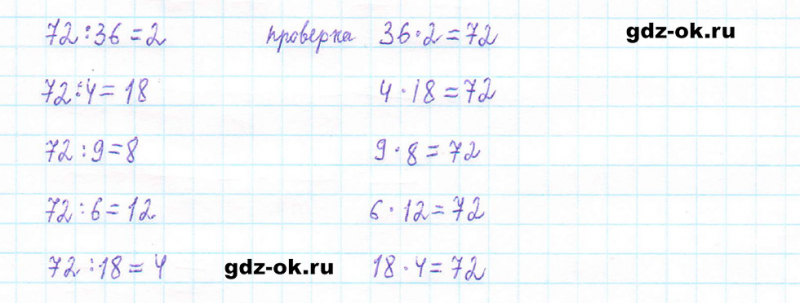 72:36=2 проверка 36·2=72 gdz-ok.ru
72:4=18 4·18=72
72:9=8 9·8=72
72:6=12 6·12=72
72:18=4 gdz-ok.ru 18·4=72